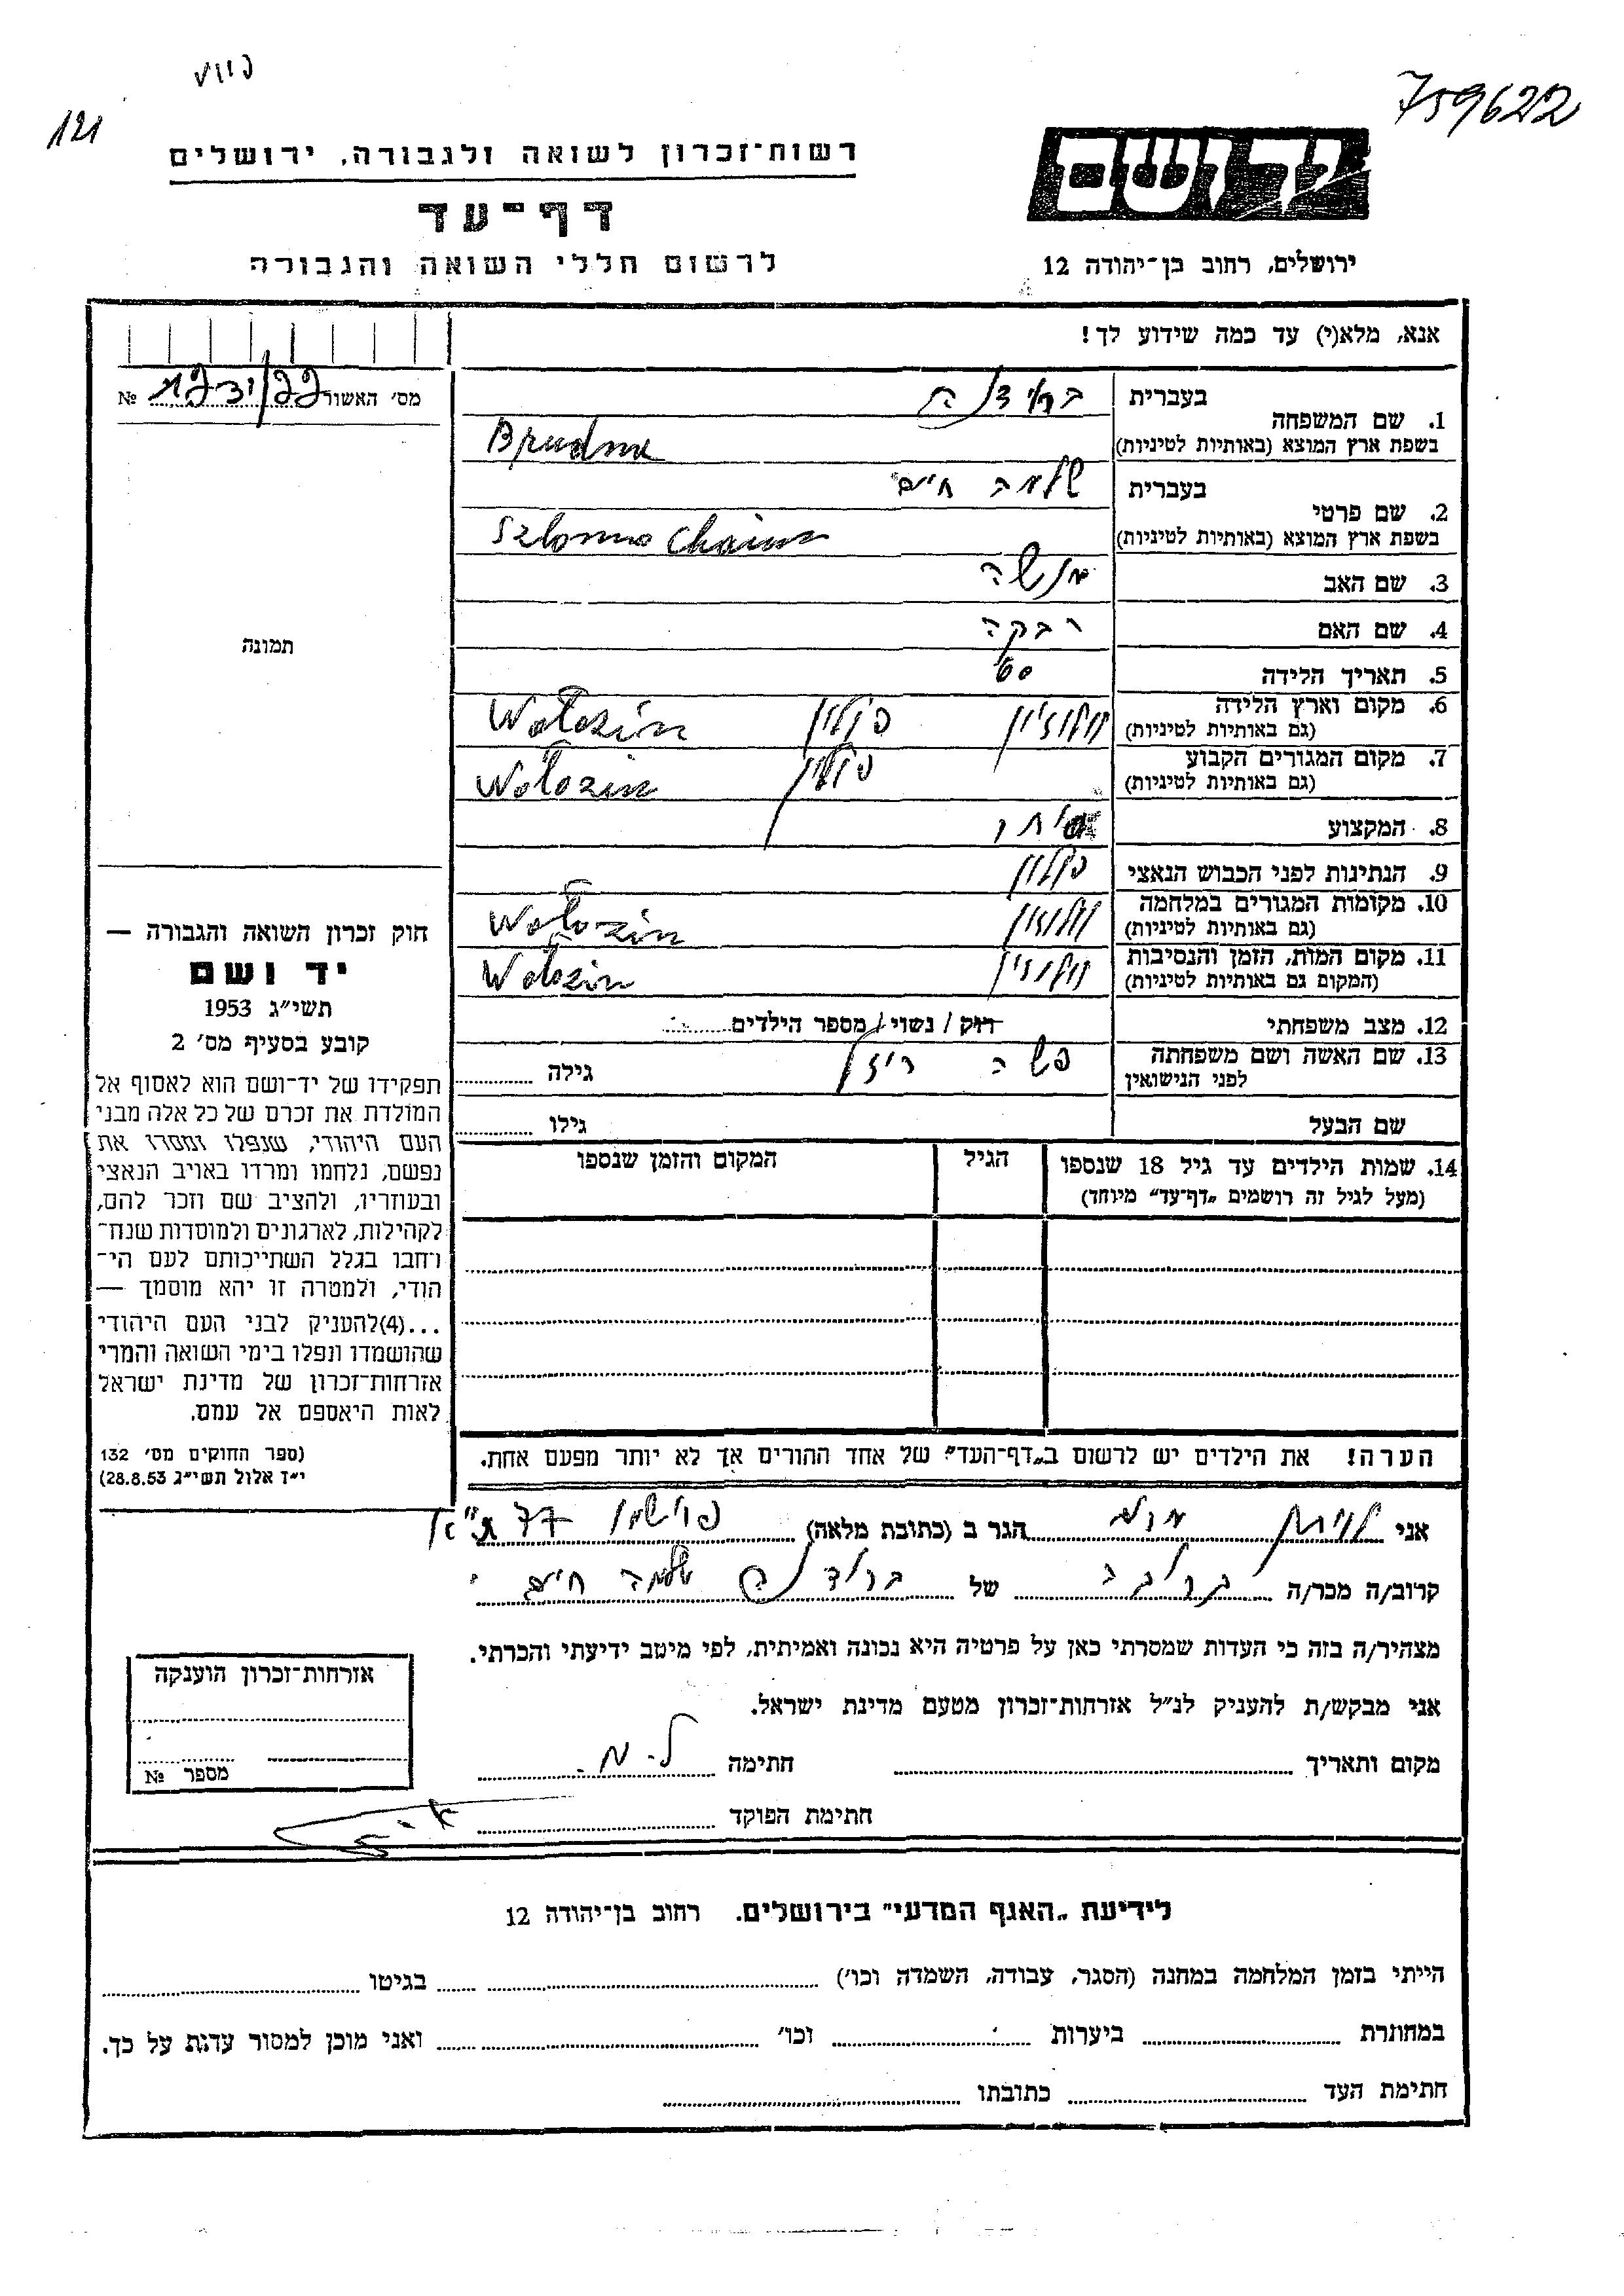 759622
121
יד ושם
רשות־זכרון לשואה ולגבורה, ירושלים
דף־עד
לרשום חללי השואה והגבורה
ירושלים, רחוב בן־יהודה 12
אנא, מלא(י) עד כמה שידוע לך!
מס׳ האשור №
1. שם המשפחה
בעברית
בשפת ארץ המוצא (באותיות לטיניות) Brudno
2. שם פרטי
בעברית שלמה חיים
בשפת ארץ המוצא (באותיות לטיניות) Szlomo Chaim
3. שם האב מנשה
4. שם האם רבקה
5. תאריך הלידה 60
6. מקום וארץ הלידה וולוז׳ין פולין Wołozin
(גם באותיות לטיניות)
7. מקום המגורים הקבוע פולין Wołozin
(גם באותיות לטיניות)
8. המקצוע
9. הנתינות לפני הכבוש הנאצי פולין
10. מקומות המגורים במלחמה וולוזין Wołozin
(גם באותיות לטיניות)
11. מקום המות, הזמן והנסיבות וולוזין Wolozin
(המקום גם באותיות לטיניות)
12. מצב משפחתי רוק / נשוי / מספר הילדים
13. שם האשה ושם משפחתה פשה גילה
לפני הנישואין
שם הבעל גילו
14. שמות הילדים עד גיל 18 שנספו הגיל המקום והזמן שנספו
(מעל לגיל זה רושמים „דף־עד״ מיוחד)
הערה! את הילדים יש לרשום ב„דף־העד״ של אחד ההורים אך לא יותר מפעם אחת.
תמונה
חוק זכרון השואה והגבורה —
יד ושם
תשי״ג 1953
קובע בסעיף מס׳ 2
תפקידו של יד־ושם הוא לאסוף אל
המולדת את זכרם של כל אלה מבני
העם היהודי, שנפלו ומסרו את
נפשם, נלחמו ומרדו באויב הנאצי
ובעוזריו, ולהציב שם וזכר להם,
לקהילות, לארגונים ולמוסדות שנח־
רחבו בגלל השתייכותם לעם הי־
הודי, ולמטרה זו יהא מוסמך —
...(4)להעניק לבני העם היהודי
שהושמדו ונפלו בימי השואה והמרי
אזרחות־זכרון של מדינת ישראל
לאות היאספם אל עמם.
(ספר החוקים מס׳ 132
י״ד אלול תשי״ג 28.8.53)
אני הגר ב (כתובת מלאה) פרישמן 77 ת״א
קרוב/ה מכר/ה של שלמה חיים
מצהיר/ה בזה כי העדות שמסרתי כאן על פרטיה היא נכונה ואמיתית, לפי מיטב ידיעתי והכרתי.
אני מבקש/ת להעניק לנ״ל אזרחות־זכרון מטעם מדינת ישראל.
מקום ותאריך חתימה ל. מ.
חתימת הפוקד
אזרחות־זכרון הוענקה
מספר №
לידיעת „האגף המדעי״ בירושלים. רחוב בן־יהודה 12
הייתי בזמן המלחמה במחנה (הסגר, עבודה, השמדה וכו׳) בגיטו
במחתרת ביערות וכו׳ ואני מוכן למסור עדות על כך.
חתימת העד כתובתו